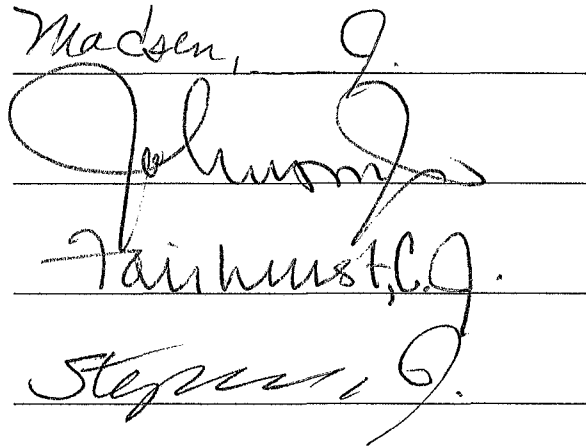 Madsen, J.
Johnson, J.
Fairhurst, C.J.
Stephens, J.